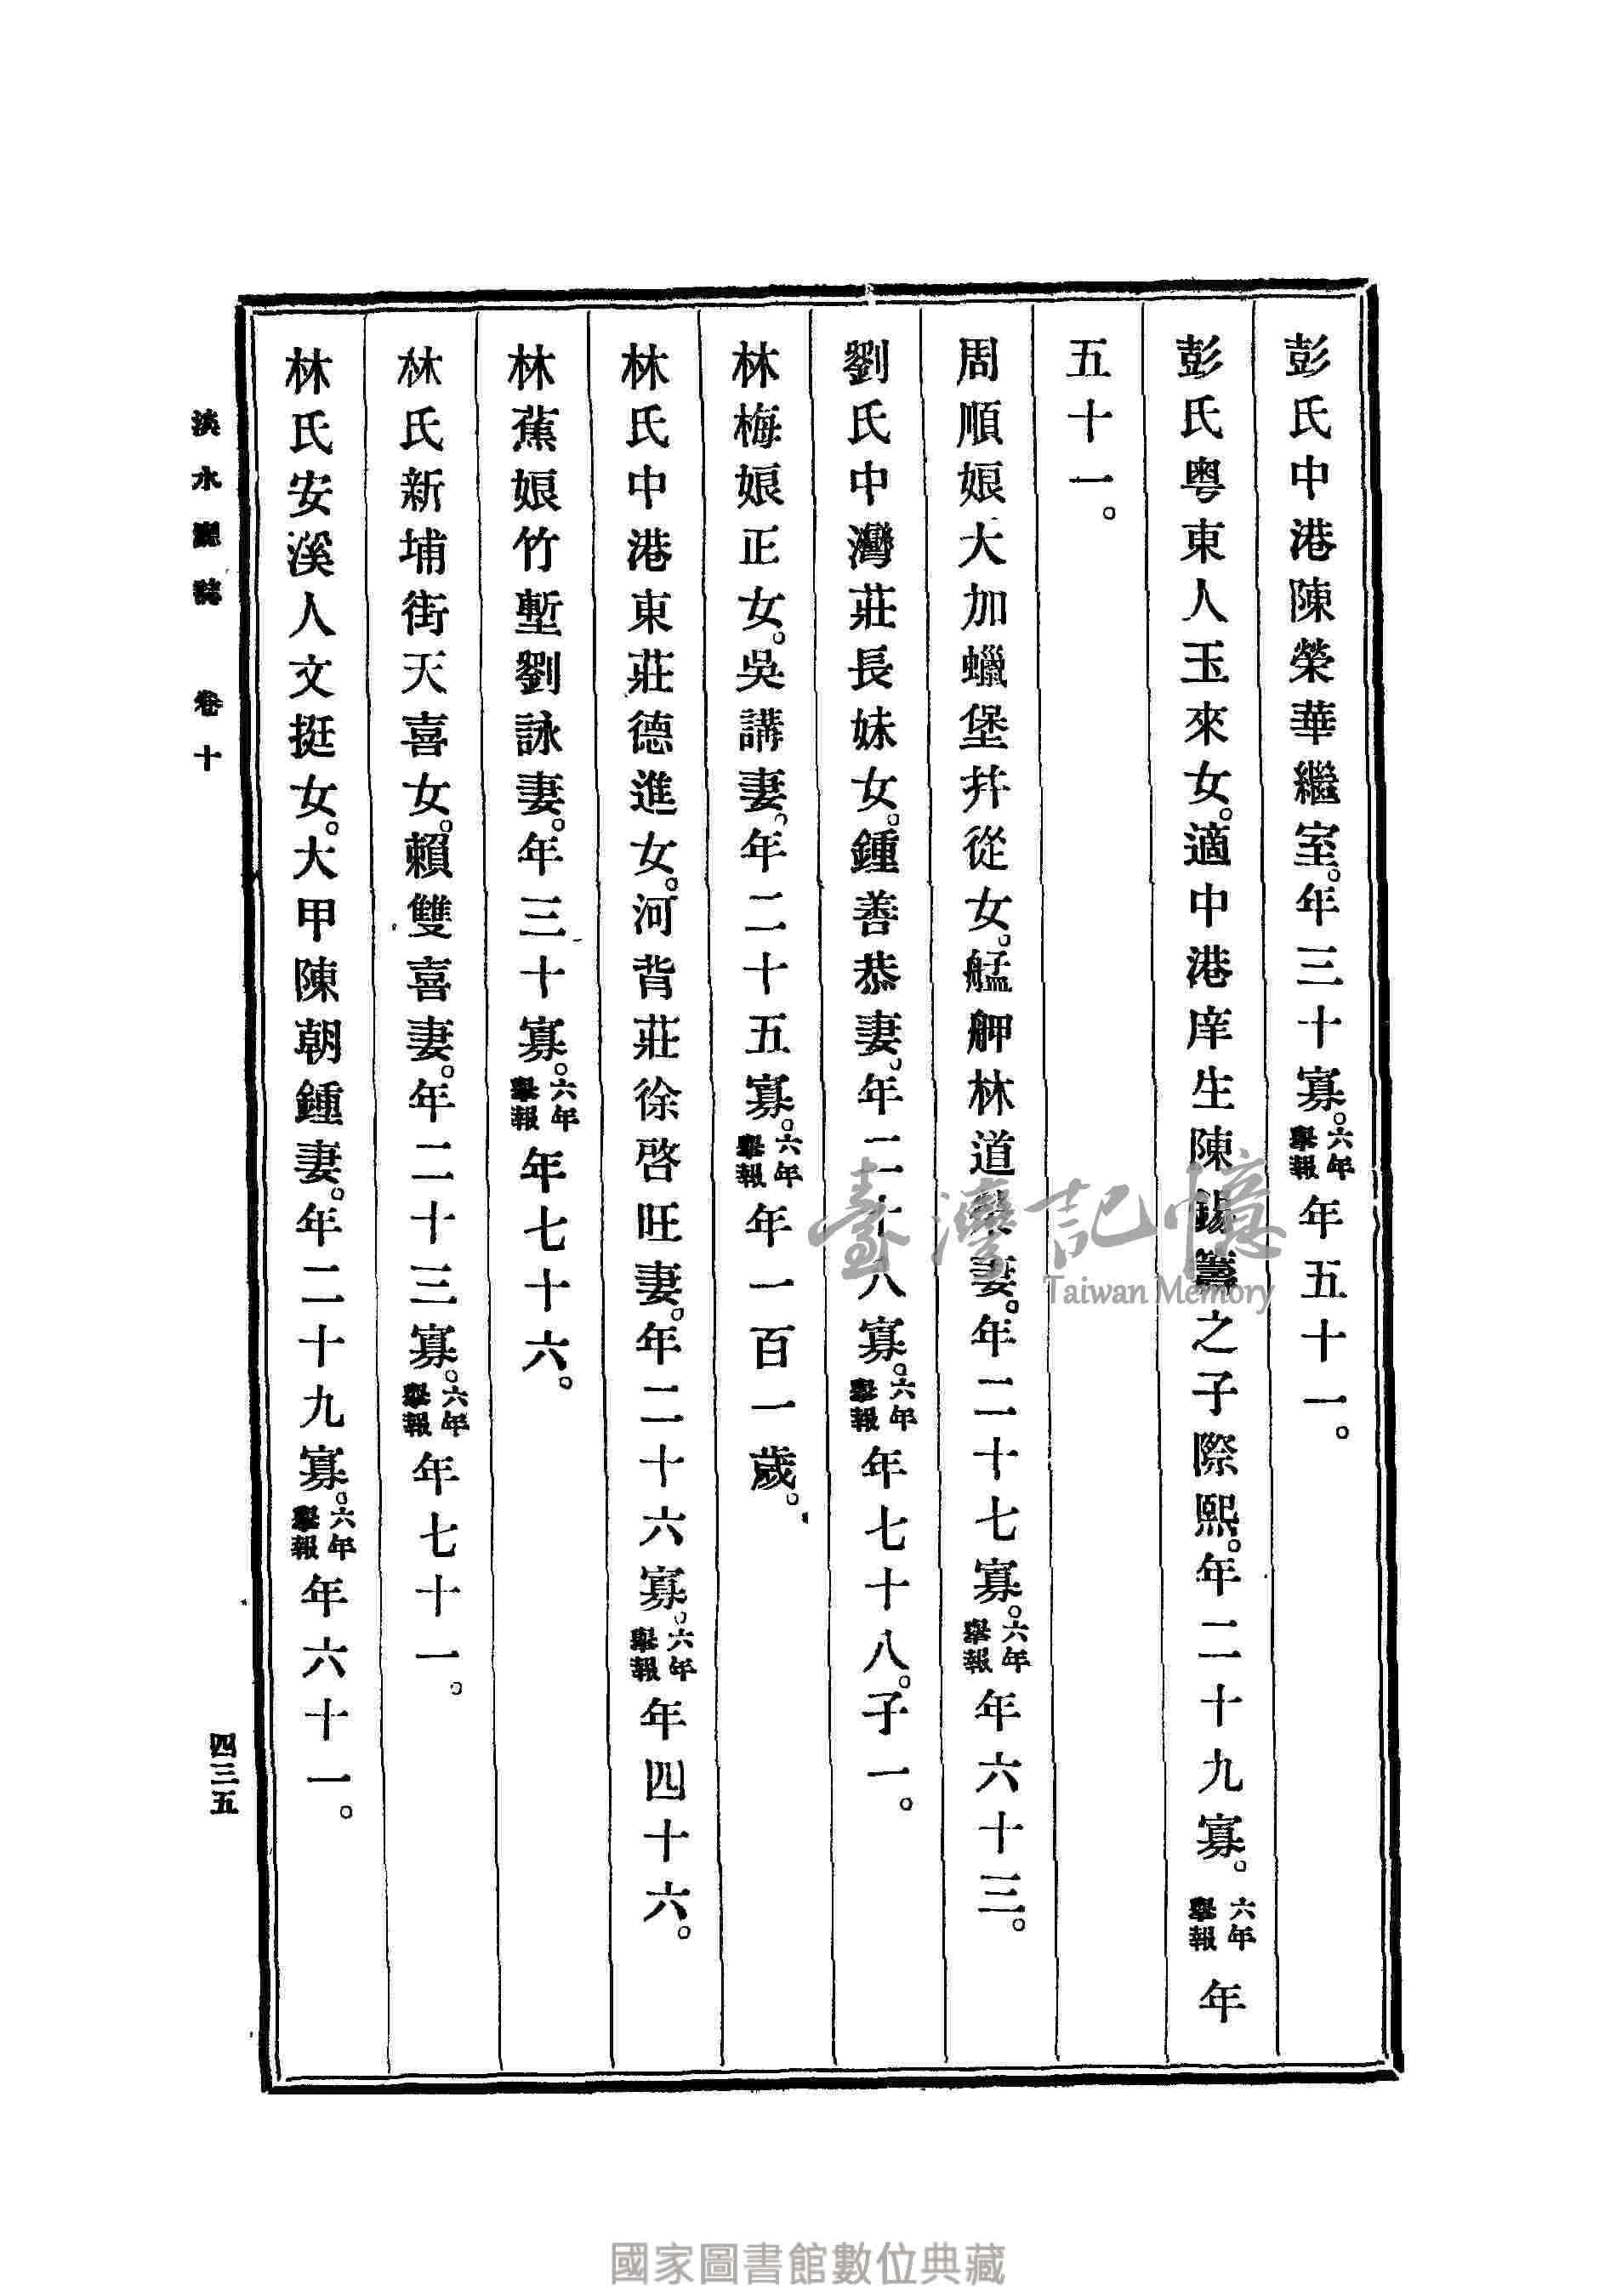 彭氏中港陳榮華繼室。年三十寡。六年舉報年五十一。
彭氏粤東人玉來女。適中港庠生陳錫疇之子際熙。年二十九寡。六年舉報年
五十一。
周順娘大加蠟堡井從女。艋舺林道榮妻。年二十七寡。六年舉報年六十三。
劉氏中灣莊長妹女。鍾善恭妻。年二十八寡。六年舉報年七十八。子一。
林梅娘正女。吳講妻。年二十五寡。六年舉報年一百一歲。
林氏中港東莊德進女。河背莊徐啓旺妻。年二十六寡。六年舉報年四十六。
林蕉娘竹塹劉詠妻。年三十寡。六年舉報年七十六。
林氏新埔街天喜女。賴雙喜妻。年二十三寡。六年舉報年七十一。
林氏安溪人文挺女。大甲陳朝鍾妻。年二十九寡。六年舉報年六十一。
淡水廳誌 卷十
四三五
臺灣記憶
Taiwan Memory
國家圖書館數位典藏